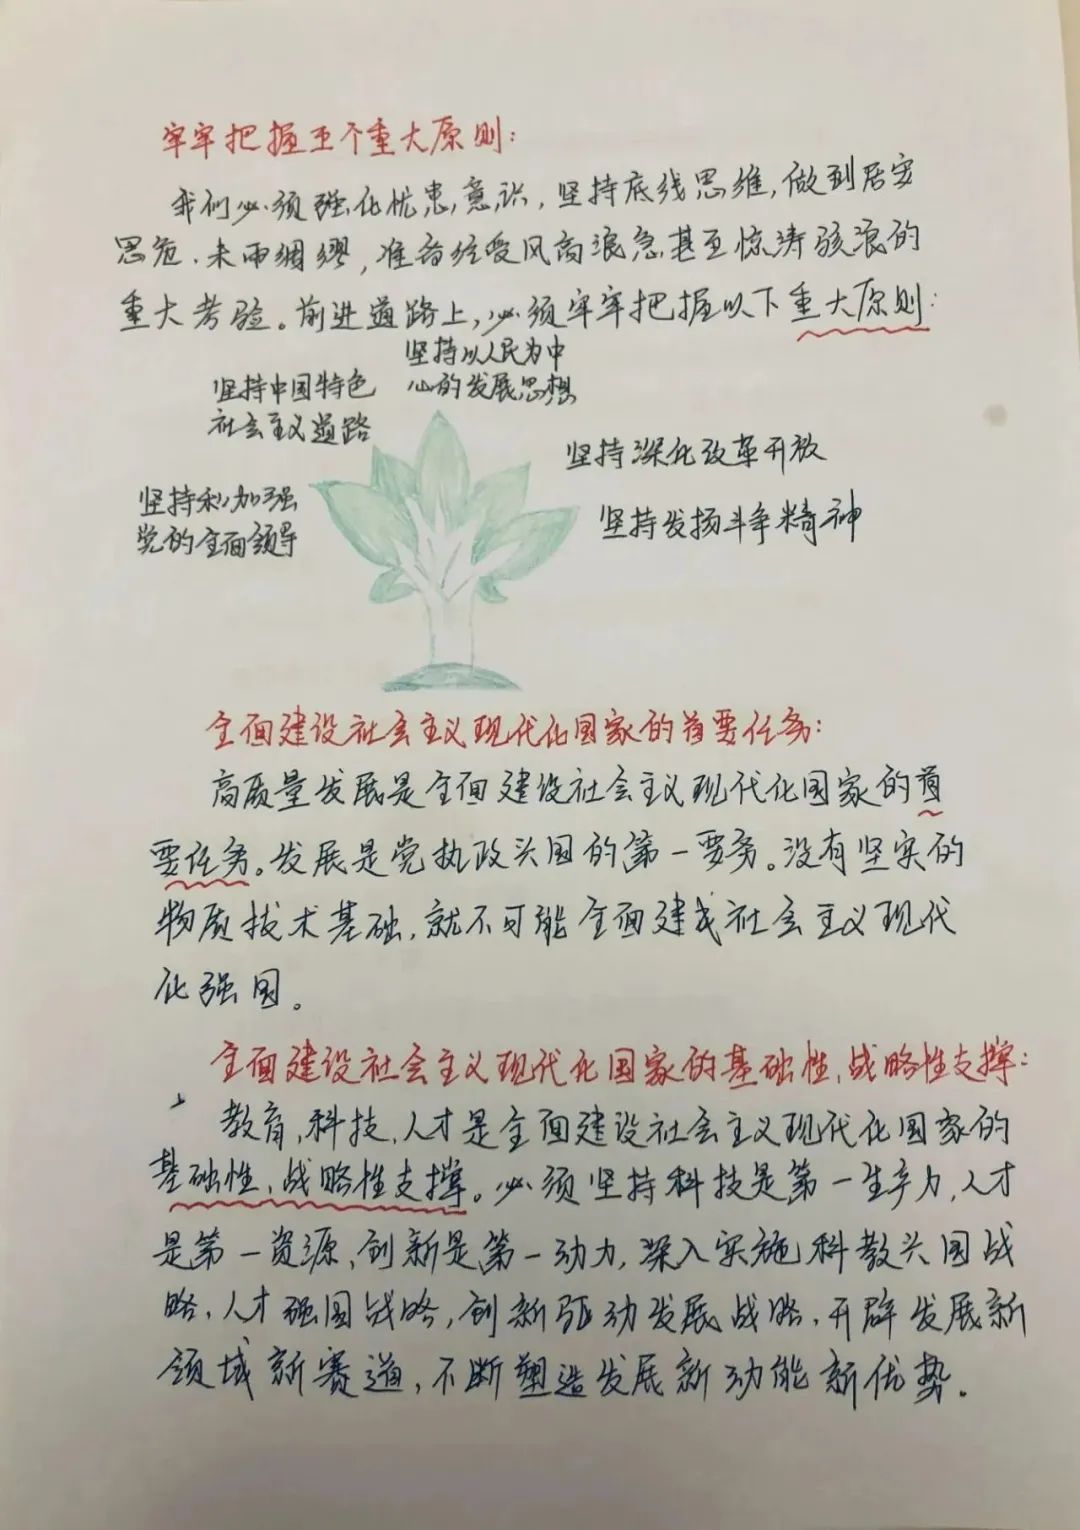 牢牢把握五个重大原则:
我们必须强化忧患意识,坚持底线思维,做到居安
思危、未雨绸缪,准备经受风高浪急甚至惊涛骇浪的
重大考验。前进道路上,必须牢牢把握以下重大原则:
坚持以人民为中
心的发展思想
坚持中国特色
社会主义道路
坚持深化改革开放
坚持和加强
党的全面领导
坚持发扬斗争精神
全面建设社会主义现代化国家的首要任务:
高质量发展是全面建设社会主义现代化国家的首
要任务。发展是党执政兴国的第一要务。没有坚实的
物质技术基础,就不可能全面建成社会主义现代
化强国。
全面建设社会主义现代化国家的基础性、战略性支撑:
教育、科技、人才是全面建设社会主义现代化国家的
基础性、战略性支撑。必须坚持科技是第一生产力、人才
是第一资源、创新是第一动力,深入实施科教兴国战
略、人才强国战略,创新驱动发展战略,开辟发展新
领域新赛道,不断塑造发展新动能新优势。